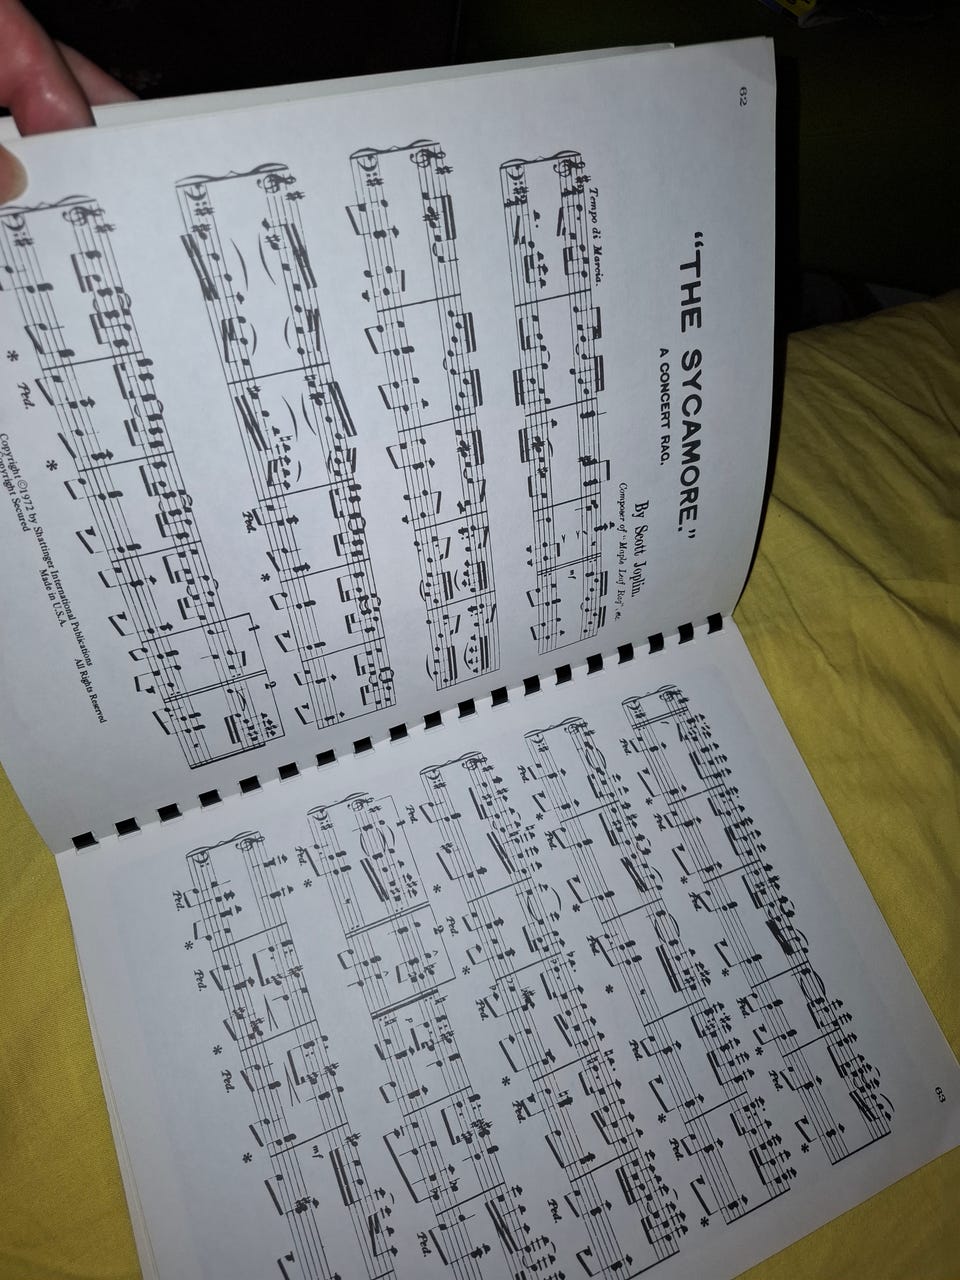 62
"THE SYCAMORE."
A CONCERT RAG.
By Scott Joplin.
Composer of "Maple Leaf Rag" etc
Tempo di Marcia.
mf
Ped.
*
1
2
* Ped. *
Copyright ©1972 by Shattinger International Publications
Copyright Secured Made in U.S.A. All Rights Reserved
63
Ped. * Ped. * Ped. * Ped. * Ped. *
Ped. * Ped. * Ped. * Ped. * Ped. *
Ped. * Ped. * Ped. * Ped.
1
2
Ped. * p Ped.
Ped. * Ped. * Ped. * mf